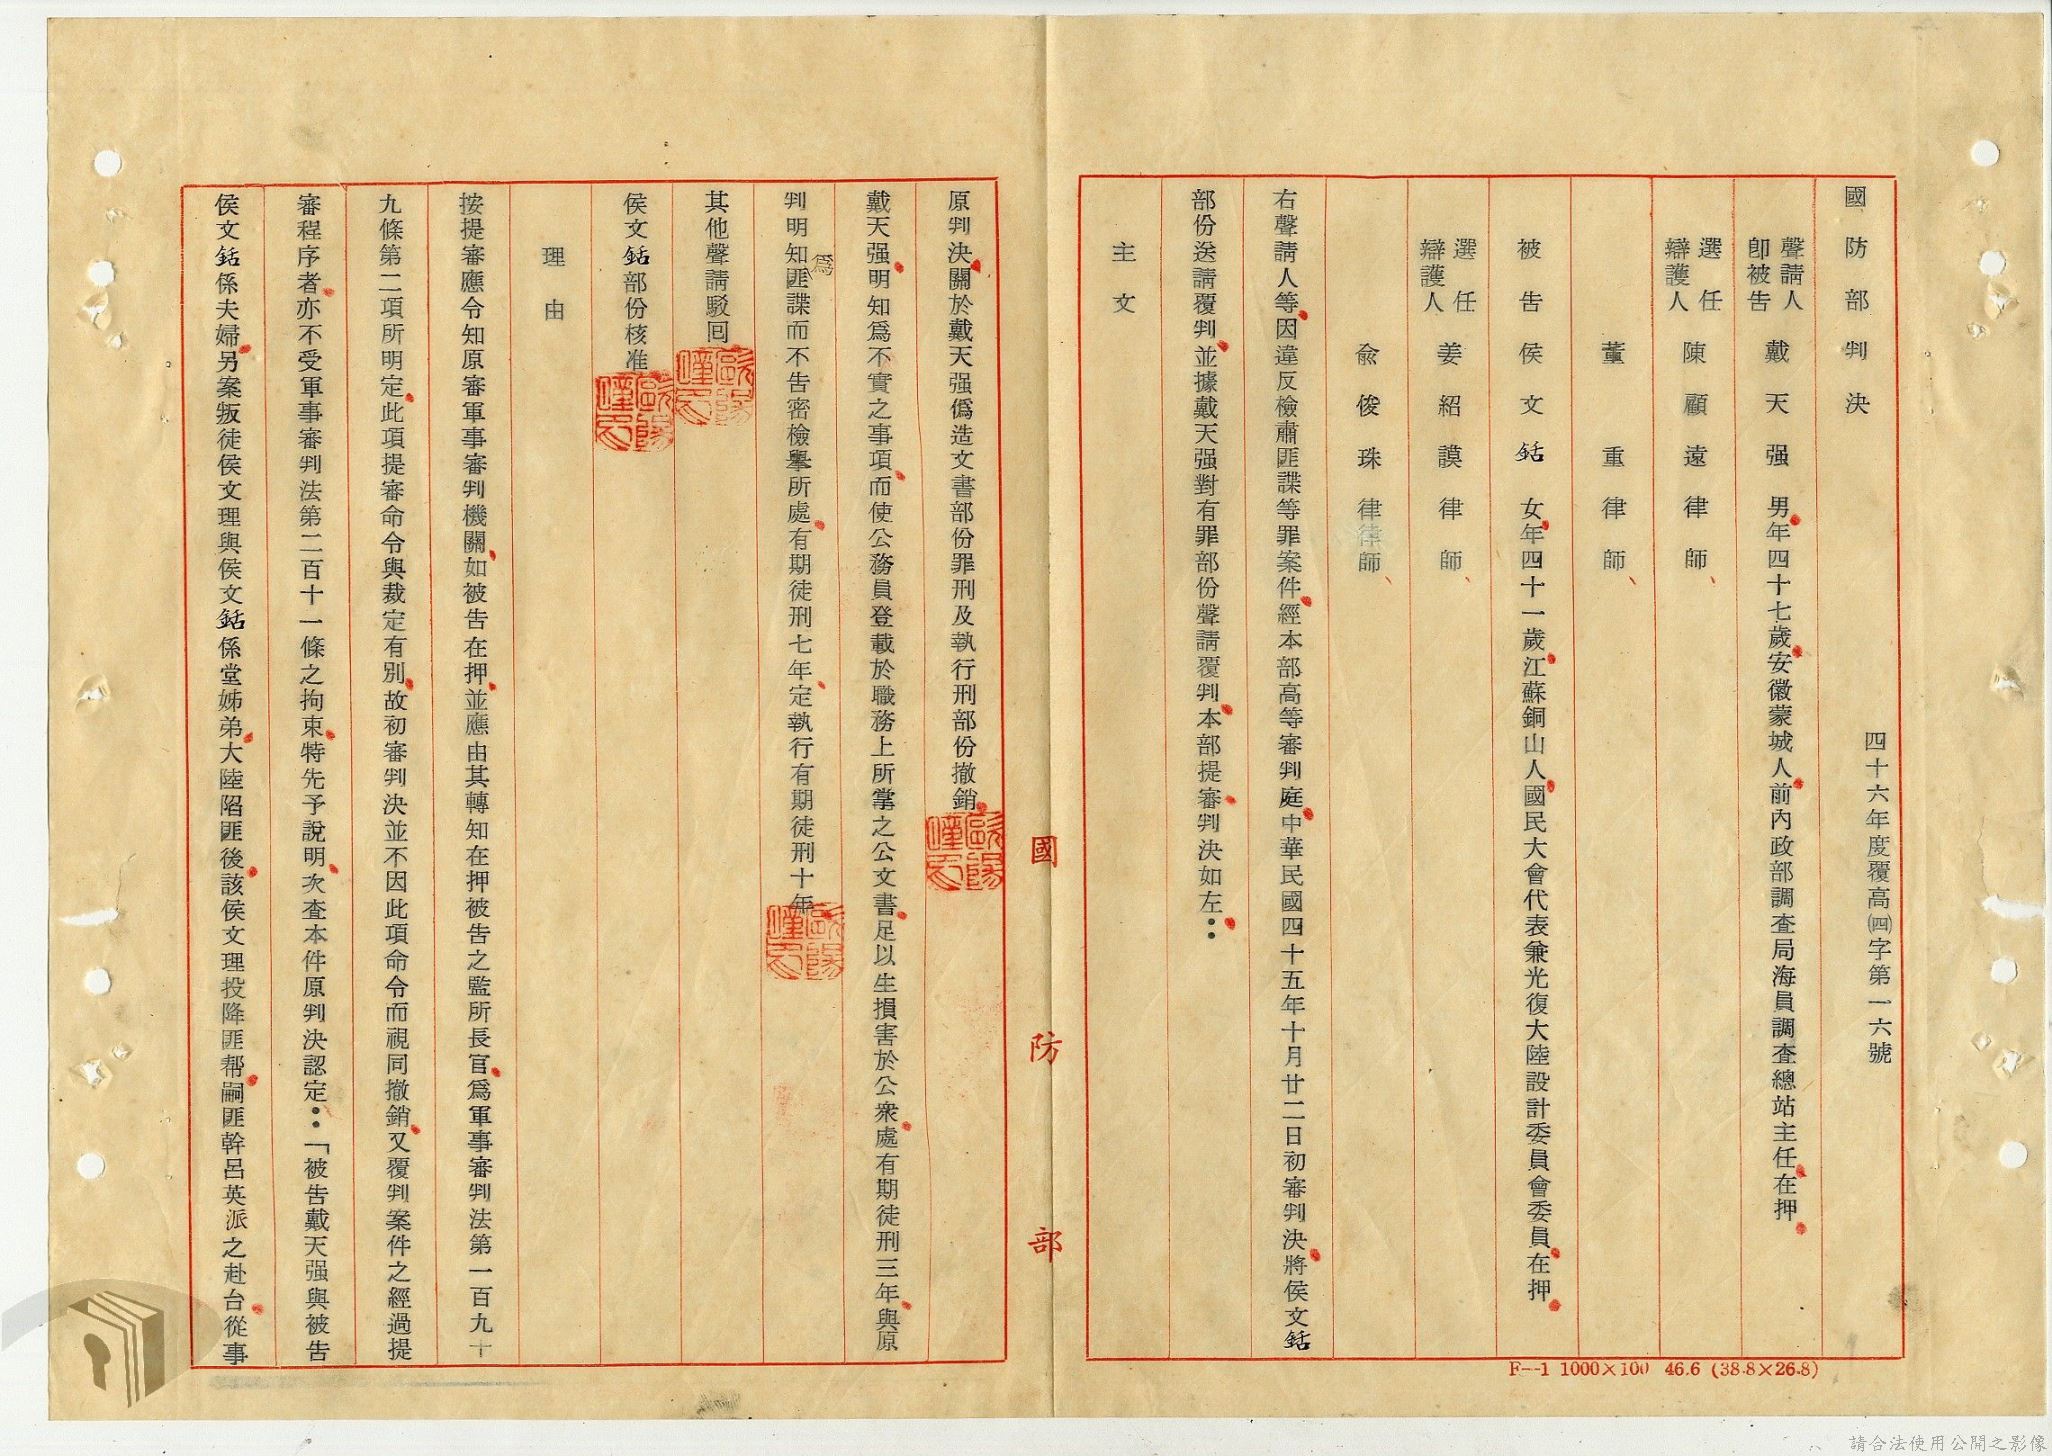 國防部判決
四十六年度覆高㈣字第一六號
聲請人
即被告 戴天强 男年四十七歲安徽蒙城人前內政部調查局海員調查總站主任在押
選任
辯護人 陳顧遠律師
董重律師
被告侯文䤛 女年四十一歲江蘇銅山人國民大會代表兼光復大陸設計委員會委員在押
選任
辯護人 姜紹謨律師
俞俊珠律師
右聲請人等因違反檢肅匪諜等罪案件經本部高等審判庭中華民國四十五年十月廿二日初審判決將侯文䤛
部份送請覆判並據戴天强對有罪部份聲請覆判本部提審判決如左：
主文
原判決關於戴天强僞造文書部份罪刑及執行刑部份撤銷
戴天强明知爲不實之事項而使公務員登載於職務上所掌之公文書足以生損害於公衆處有期徒刑三年與原
判明知爲匪諜而不告密檢舉所處有期徒刑七年定執行有期徒刑十年
其他聲請駁回
侯文䤛部份核准
理由
按提審應令知原審軍事審判機關如被告在押並應由其轉知在押被告之監所長官爲軍事審判法第一百九十
九條第二項所明定此項提審命令與裁定有別故初審判決並不因此項命令而視同撤銷又覆判案件之經過提
審程序者亦不受軍事審判法第二百十一條之拘束特先予說明次查本件原判決認定：「被告戴天强與被告
侯文䤛係夫婦另案叛徒侯文理與侯文䤛係堂姊弟大陸陷匪後該侯文理投降匪幫嗣匪幹呂英派之赴台從事
國防部
F--1 1000×100 46.6 (38.8×26.8)
請合法使用公開之影像